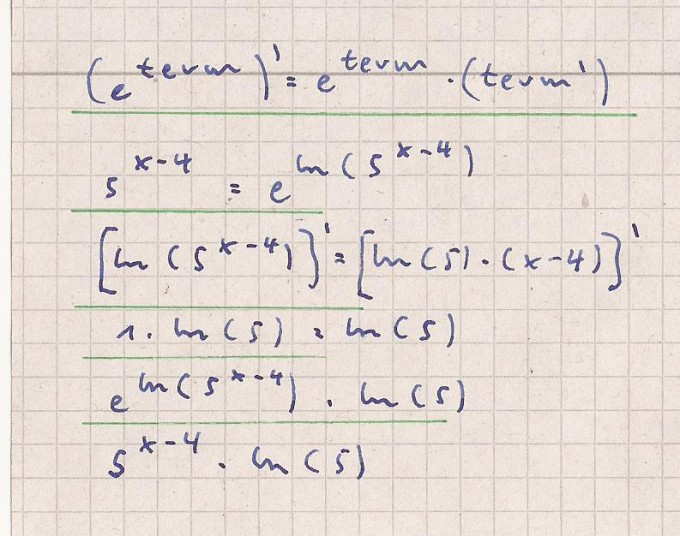 (e^term)' = e^term · (term')
5^x-4 = e^ln(5^x-4)
[ln(5^x-4)]' = [ln(5)·(x-4)]'
1·ln(5) = ln(5)
e^ln(5^x-4) · ln(5)
5^x-4 · ln(5)